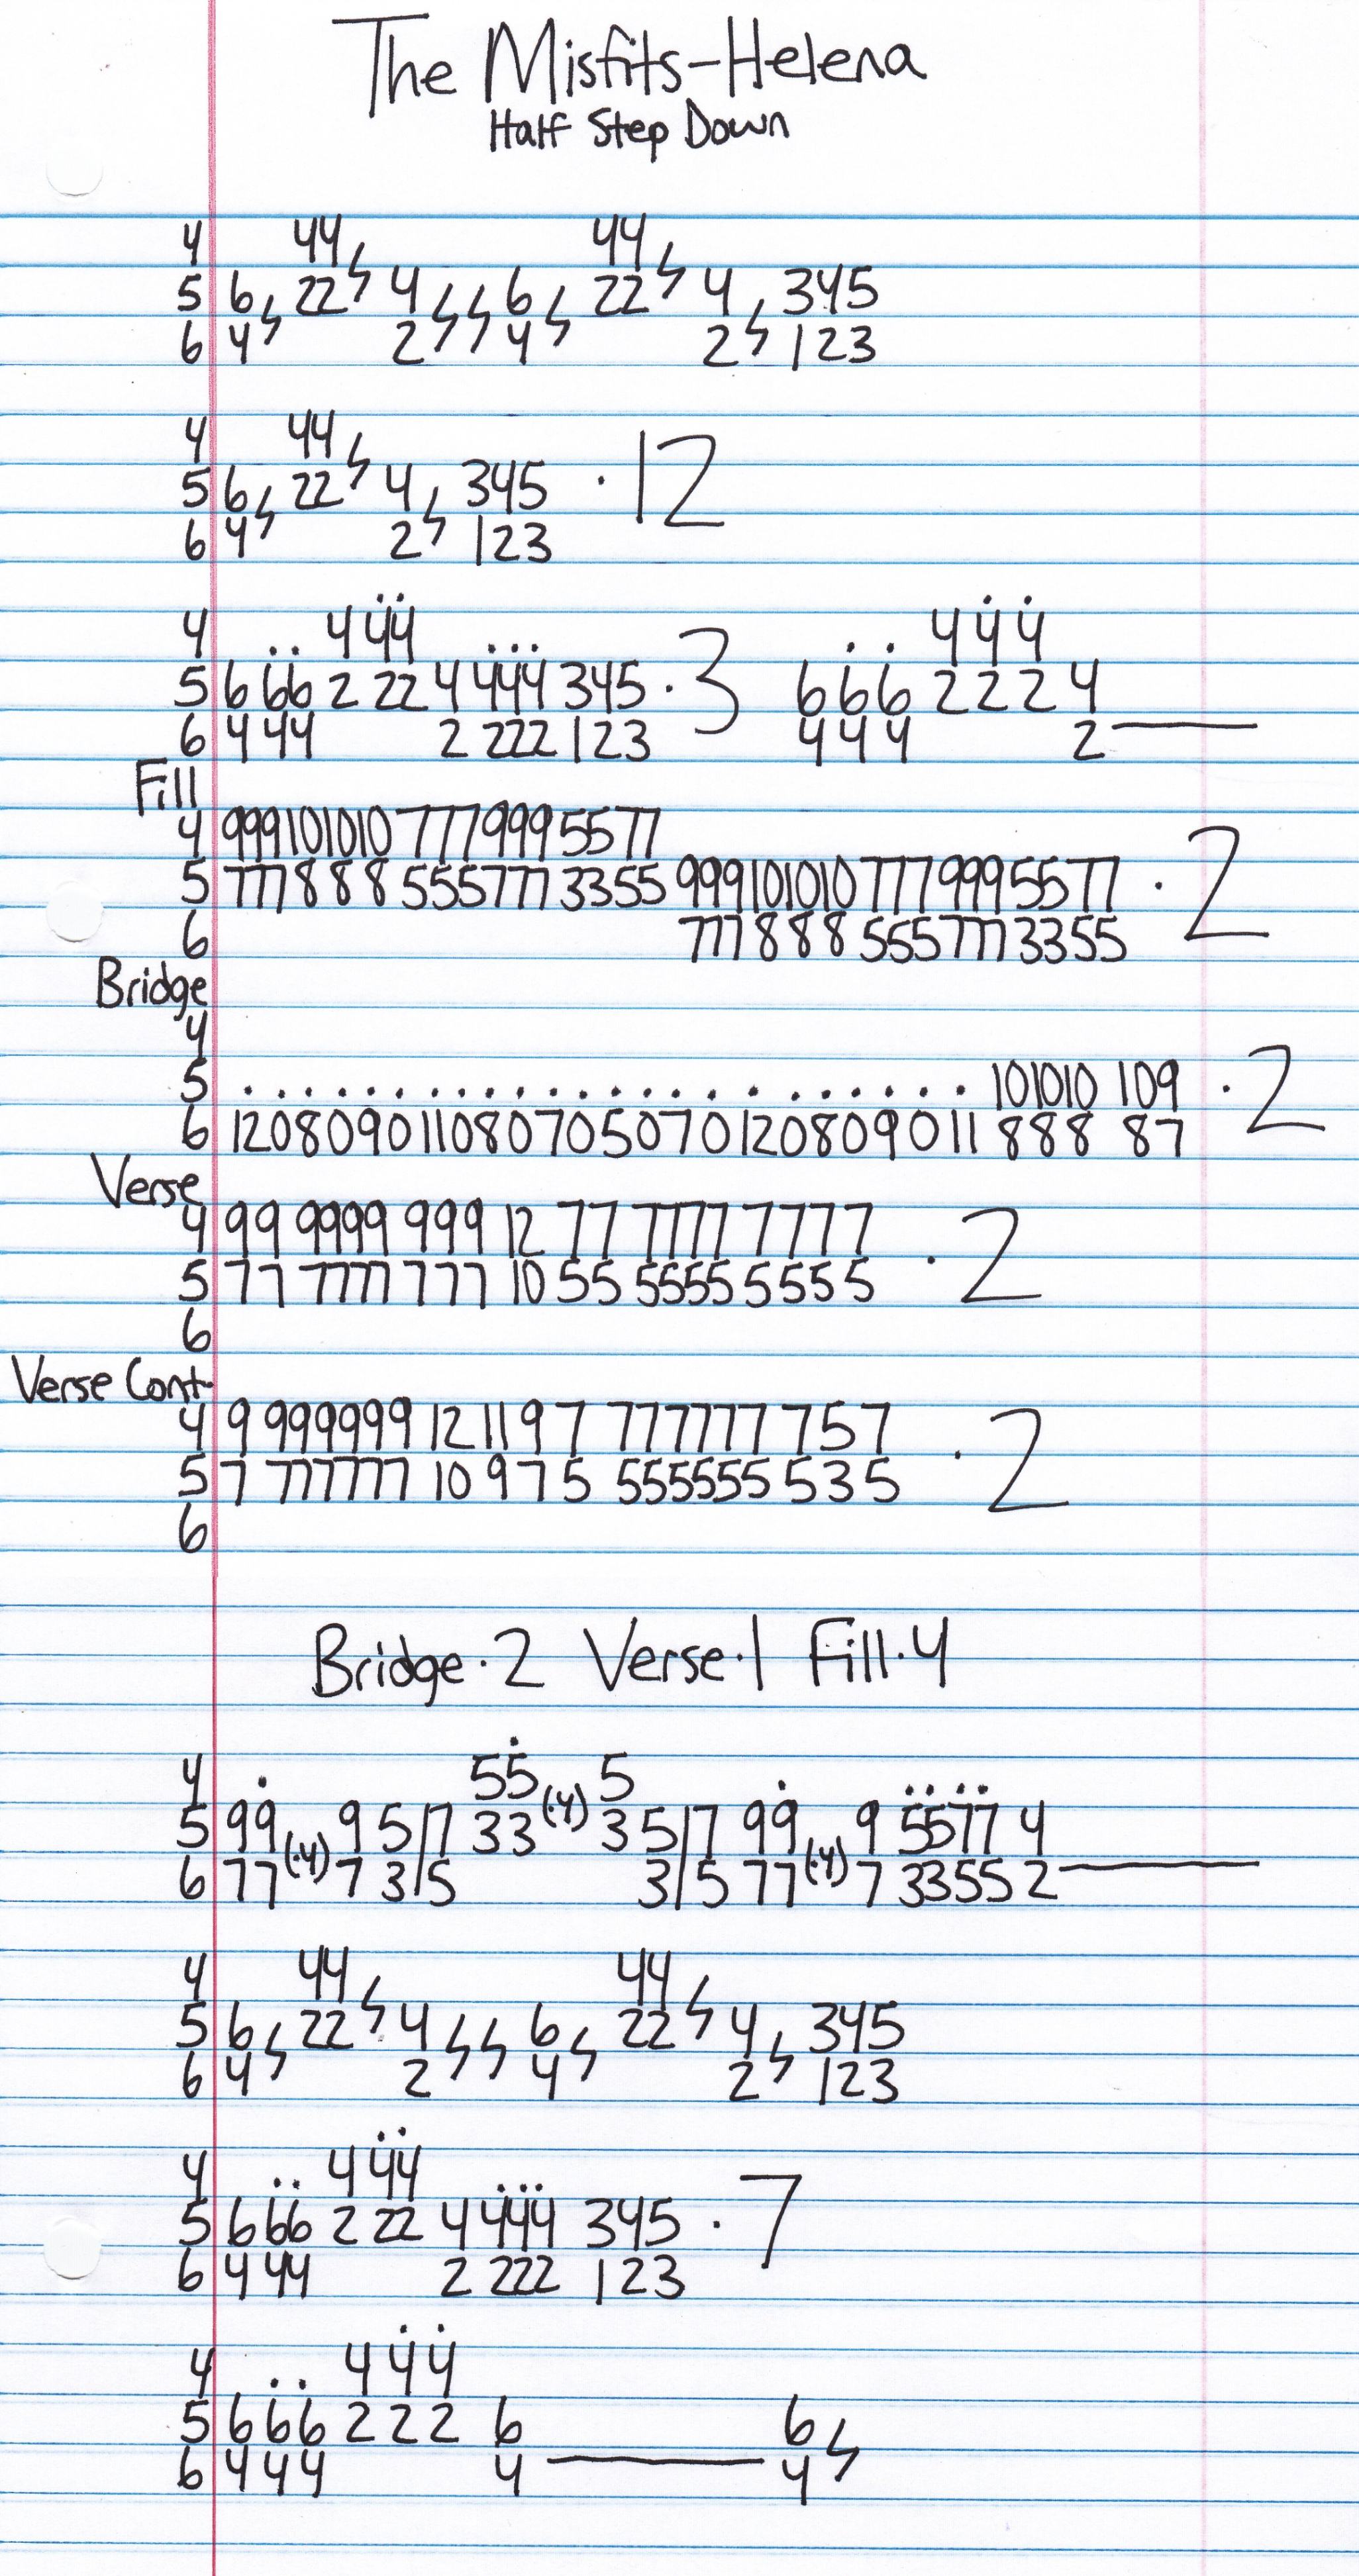 The Misfits-Helena
Half Step Down
4 44 44
5 6 22 4 6 22 4 345
6 4 2 4 2 123
4 44
5 6 22 4 345 · 12
6 4 2 123
4 4 44 4 4 4
5 6 66 2 22 4 444 345 · 3 6 6 6 2 2 2 4
6 4 44 2 222 123 4 4 4 2
Fill
4 999101010 7779995577
5 777 8 8 8 5557773355 999101010 7779995577 · 2
6 777 8 8 8 5557773355
Bridge
4
5 101010 109 · 2
6 1208090110807050701208090 11 888 87
Verse
4 99 9999 999 12 77 7777 7777 · 2
5 77 7777 777 10 55 5555 5555
6
Verse Cont.
4 9 999999 12 11 9 7 777777 757 · 2
5 7 777777 10 9 7 5 555555 535
6
Bridge · 2 Verse · 1 Fill · 4
4 55 5
5 99 (·4) 9 5/7 33 (·4) 3 5/7 99 (·4) 9 5577 4
6 77 7 3/5 3/5 77 7 3355 2
4 44 44
5 6 22 4 6 22 4 345
6 4 2 4 2 123
4 4 44
5 6 66 2 22 4 444 345 · 7
6 4 44 2 222 123
4 4 4 4
5 6 6 6 2 2 2 6 6
6 4 4 4 4 4